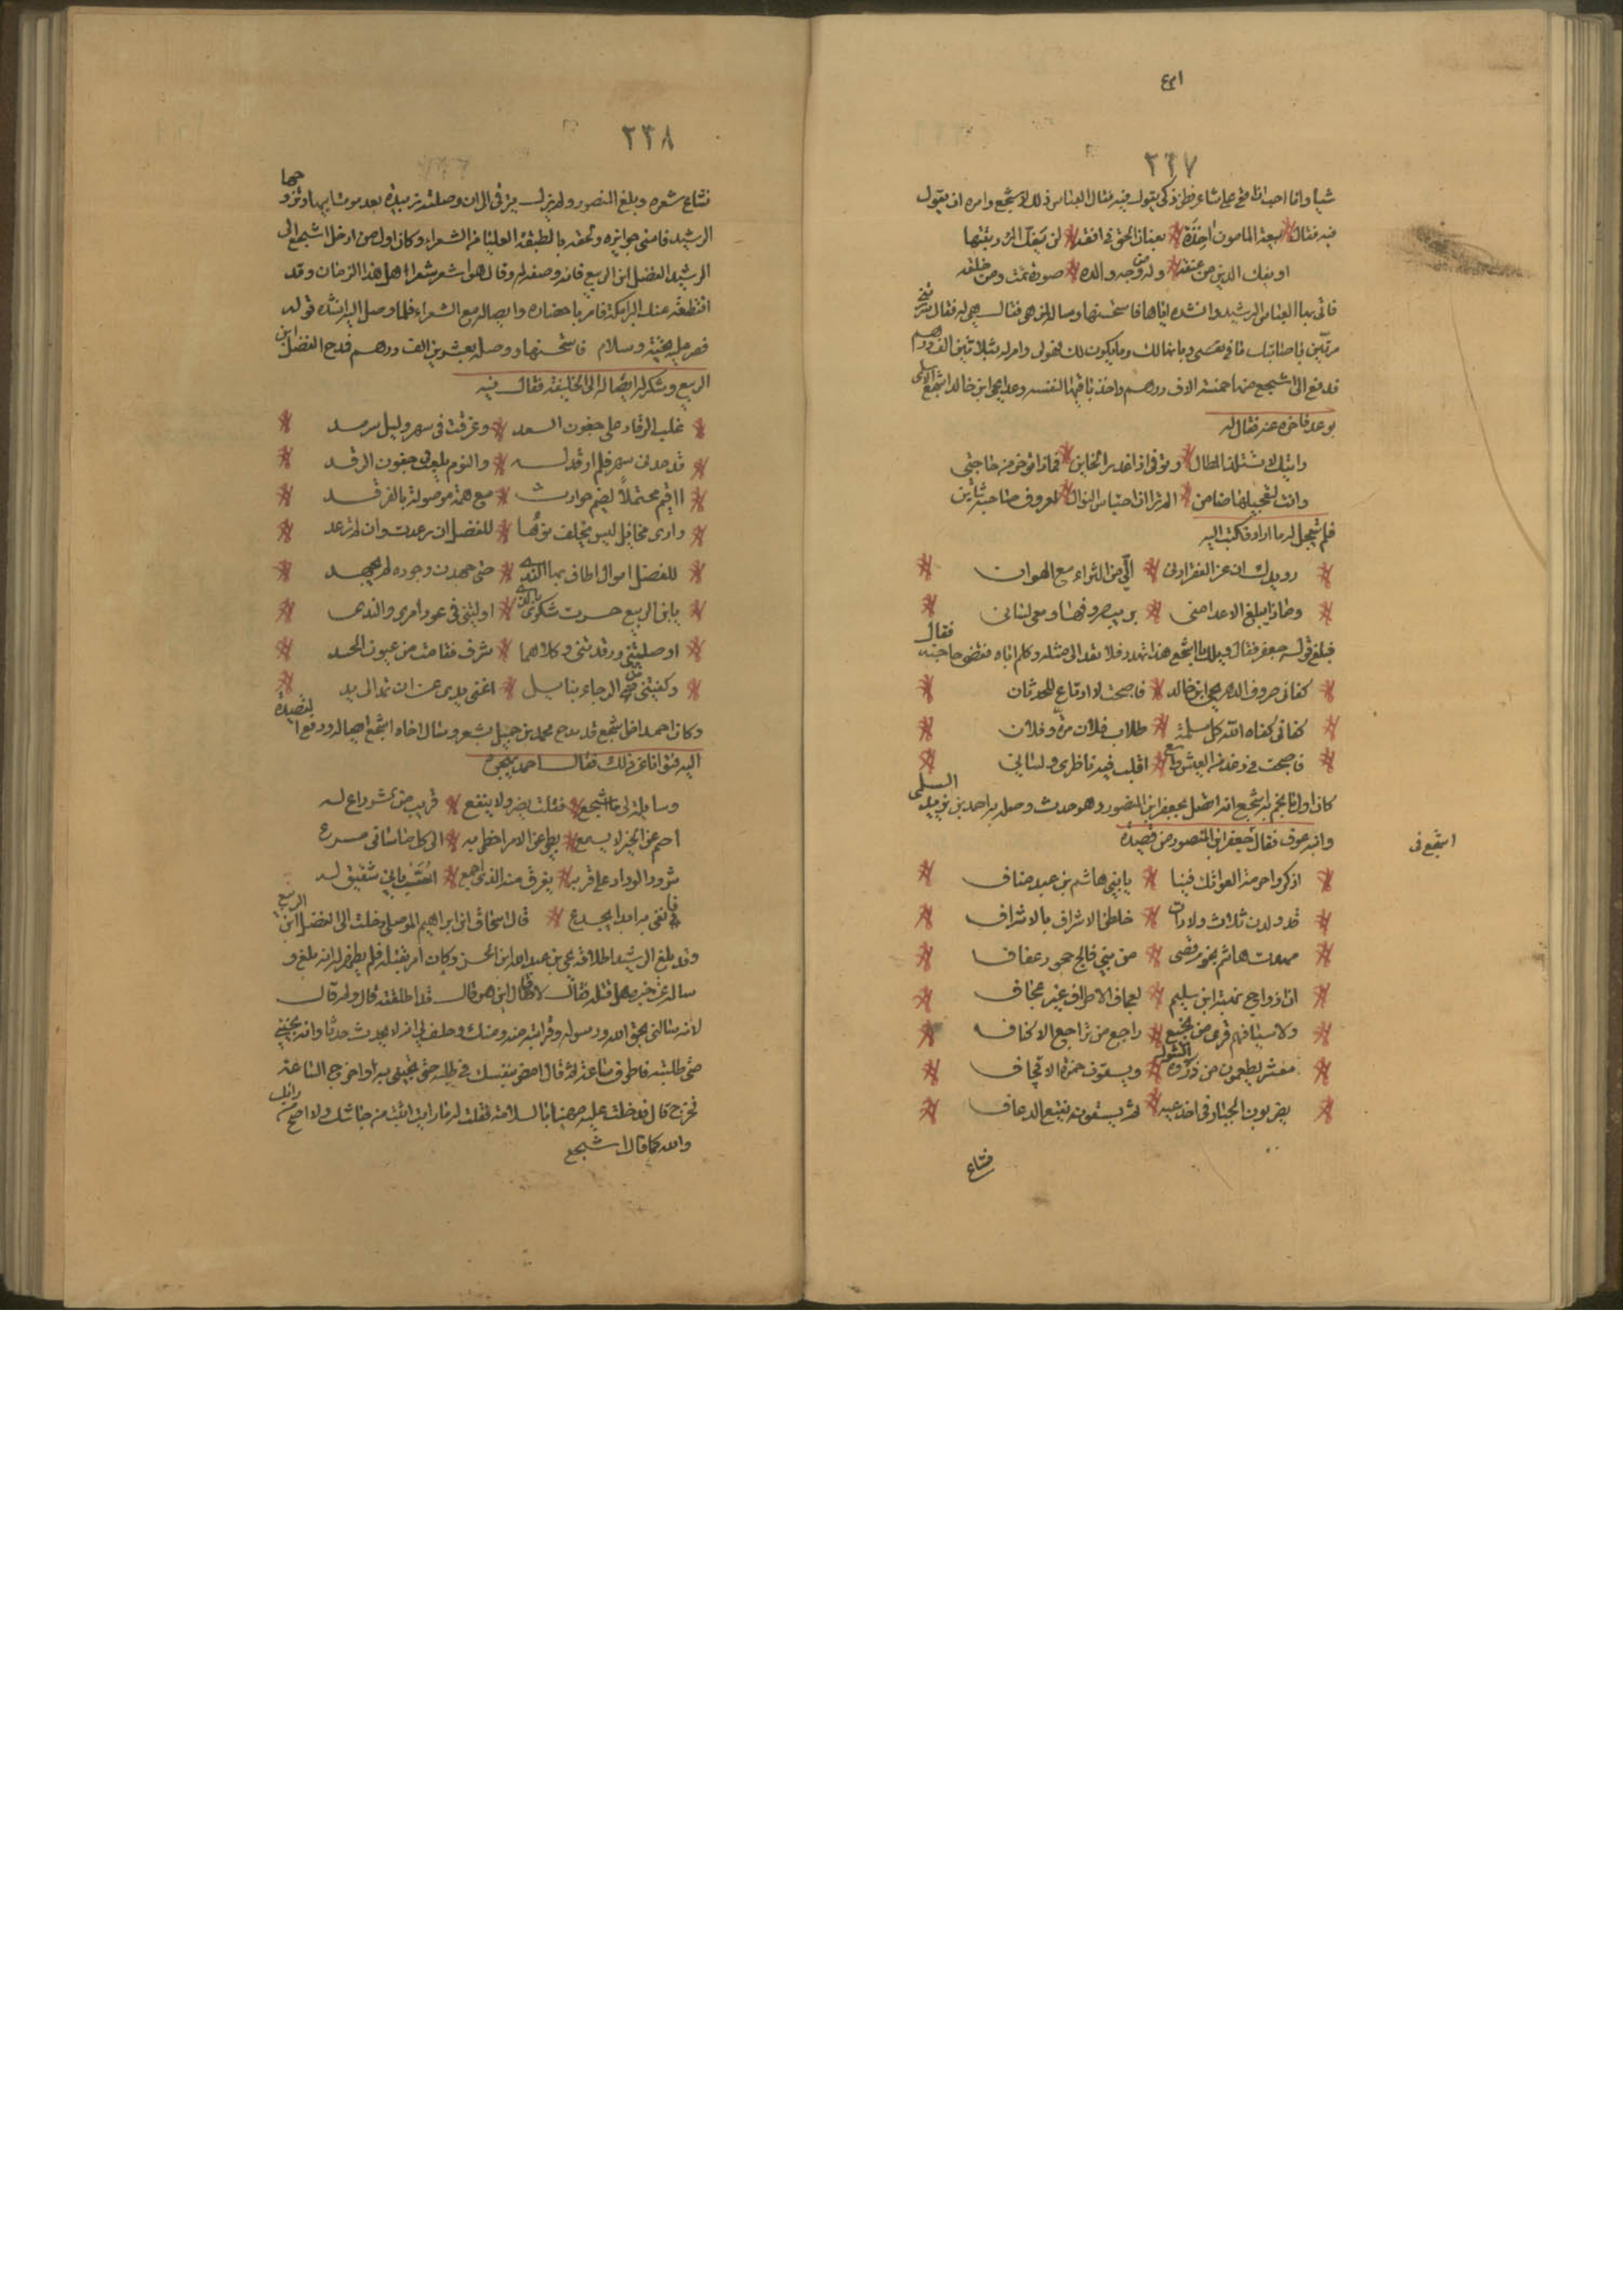 ٢٣٧
شيأ وانا احب ان يقع على شاعر فطن ذكى يقول فيه فقال العباس ذلك لاشجع وامره ان يقول
فيه فقال بيعة المامون اخذة بعنان الحق فى افقه لن يفك المرء ربقتها
او يفك الدين من عنقه وله من وجه والده صورة تمت ومن خلقه
فاتى بها العباس الرشيد وانشده اياها فاستحسنها وساله لمن هى فقال هى لى فقال سررتنى
مرتين باصابتك ما فى نفسى وبانها لك وما يكون لك فهو لى وامر له بثلاثين الف درهم
فدفع الى اشجع منها خمسة الاف درهم واخذ باقيها لنفسه وعد يحيى ابن خالد اشجع السلمى
بوعد فاخره عنه فقال له
رايتك لا تستلذ المطال وتوفى اذا غدر الخاين فماذا تؤخر من حاجتى
وانت لتعجيلها ضامن الم تر ان احتباس النوال لمعروف صاحبه شاين
فلم يتعجل له ما اراد فكتب اليه
رويدك ان عز الفقر ادنى الى من الثراء مع الهوان
وماذا يبلغ الاعدا منى بريب صروفها ومعى لسانى
فبلغ قوله جعفر فقال ويلك يا اشجع هذا تهدد فلا تعد الى مثله وكلم اباه فقضى حاجته فقال
كفانى صروف الدهر يحيى ابن خالد فاصبحت لا ارتاع للحدثان
كفانى كفاه الله كل ملمة طلاب فلان مرة وفلان
فاصبحت فى رغد من العيش واسع اقلب فيه ناظرى ولسانى
كان اول ما نجم به اشجع انه اتصل بجعفر ابن المنصور وهو حدث وصله به احمد بن يزيد السلمى
وابنه عوف فقال اشجع فى جعفر ابن المنصور من قصيدة
اذكروا حرمة العواتك فينا يا بنى هاشم بن عبد مناف
قد ولدن ثلاث ولادات خلطنا الاشراف بالاشراف
مهدت هاشم نجوم قصى من بنى فالج حجور عفاف
ان ارماح بهثة ابن سليم لعجاف الاطراف غير عجاف
ولاسيافهم قرى من لجيع راجع من تراجع الاكناف
معشر يطعمون من ذروة الشول ويسقون خمرة الاقحاف
يضربون الجبار فى اخدعيه ثم يسقونه نقيع الدعاف
فشاع
٢٣٨
فشاع شعره وبلغ المنصور ولم يزل يترقى الى ان وصلته زبيدة بعد موت ابيها وتزوجها
الرشيد فاسنى جوايزه والحقه بالطبقة العليا من الشعراء وكان اول من ادخل اشجع الى
الرشيد الفضل ابن الربيع فانه وصفه له وقال هو اشعر شعراء اهل هذا الزمان وقد
اقتطعته عنك البرامكة فامر باحضاره وايصاله مع الشعراء فلما وصل اليه انشده قوله
قصر عليه تحية وسلام فاستحسنها ووصله بعشرين الف درهم فمدح الفضل ابن
الربيع وشكر له ايصاله الى الخليفة فقال فيه
غلب الرقاد على جفون المسعد وغرقت فى سهر وليل سرمد
قد جد بى سهر فلم ارقد له والنوم يلعب فى جفون الرقد
ااقيم محتملا لضيم حوادث مع همة موصولة بالفرقد
وارى مخايل ليس يخلف نوها للفضل ان رعدت وان لم ترعد
للفضل اموال اطاف بها الندى حتى جهدن وجوده لم يجهد
يا ابن الربيع حسرت شكرى بالذى اوليتنى فى عود امرى والندى
اوصلتنى ورفدتنى وكلاهما شرف فقات من عيون الحسد
وكفيتنى منن الرجاء بنايل اغنى يدى عن ان تمد الى يد
وكان احمد اخو اشجع قد مدح محمد بن جميل بشعر وسال اخاه اشجع ايصاله ودفع القصيدة
اليه فتوانا عن ذلك فقال احمد يهجوه
وسايلة لى ما اشجع فقلت يضر ولا ينفع قريب من الشر داع له
اصم عن الخير لا يسمع بطى عن الامر احظى به الى كل ما ساءنى مسرع
شرود الوداد على قربه يفرق منه الذى اجمع اسب بانى شقيق له
فانفى به ابدا اجدع قال اسحاق ابن ابراهيم الموصلى دخلت الى الفضل ابن الربيع
وقد بلغ الرشيد اطلاقه يحيى بن عبد الله ابن الحسن وكان امر بقتله فلم يظهر له انه بلغه و
ساله عن خبره هل قتله فقال لا فقال اين هو قال قد اطلقته قال ولم قال
لانه سالنى بحق الله ورسوله وقرابته منه ومنك وحلف لى انه لا يحدث حدثا وانه يجيبنى
متى طلبته فاطرق ساعة ثم قال امض بنفسك فى طلبه حتى تجينى به واخرج الساعة
فخرج قال فدخلت عليه مهنيا بالسلامة فقلت له ما رايت اثبت من جاشك ولا اصح من رايك
والله كما قال اشجع